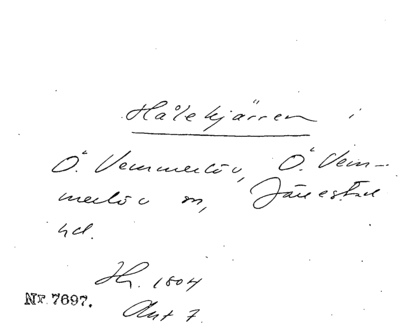 Hålekjärren i
Ö. Vemmerlöv, Ö. Vem-
merlöv sn, Järrestad
hd.
Hr. 1804
Akt 7.
Nr. 7697.